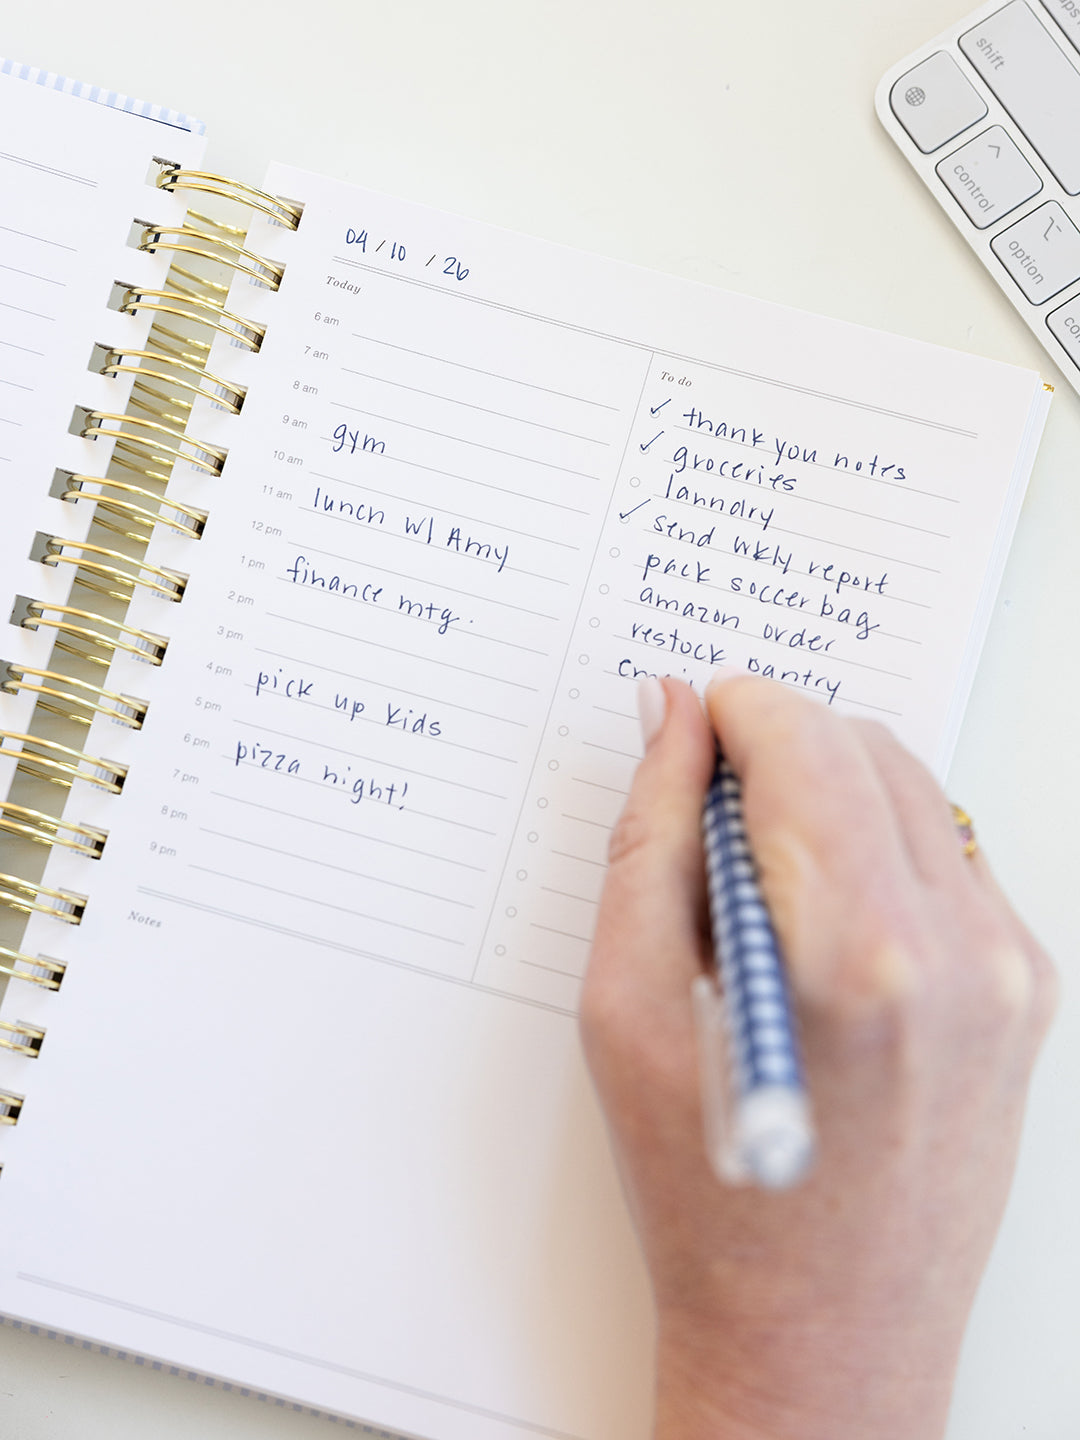 04 / 10 / 26
Today
6 am
7 am
8 am
9 am gym
10 am
11 am lunch w/ Amy
12 pm
1 pm finance mtg.
2 pm
3 pm
4 pm pick up kids
5 pm
6 pm pizza night!
7 pm
8 pm
9 pm
To do
thank you notes
groceries
laundry
send wkly report
pack soccer bag
amazon order
restock pantry
Notes
shift
control
option